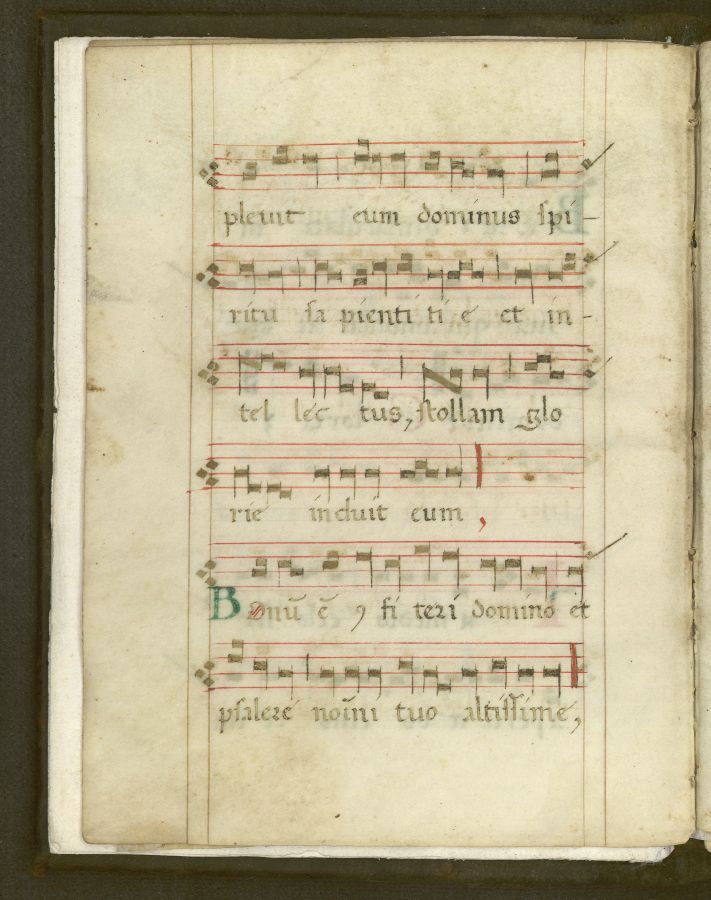 pleuit eum dominus spi-
ritu sa pienti ti e et in-
tel lec tus, stollam glo
rie induit eum,
Bonū ē ꝯ fi teri domino et
psalere noīni tuo altissime,